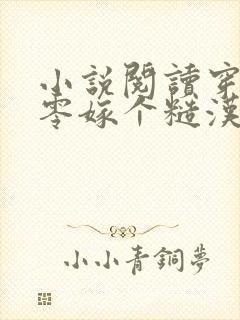 小說閱讀穿
零嫁个糙漢
小小青銅夢